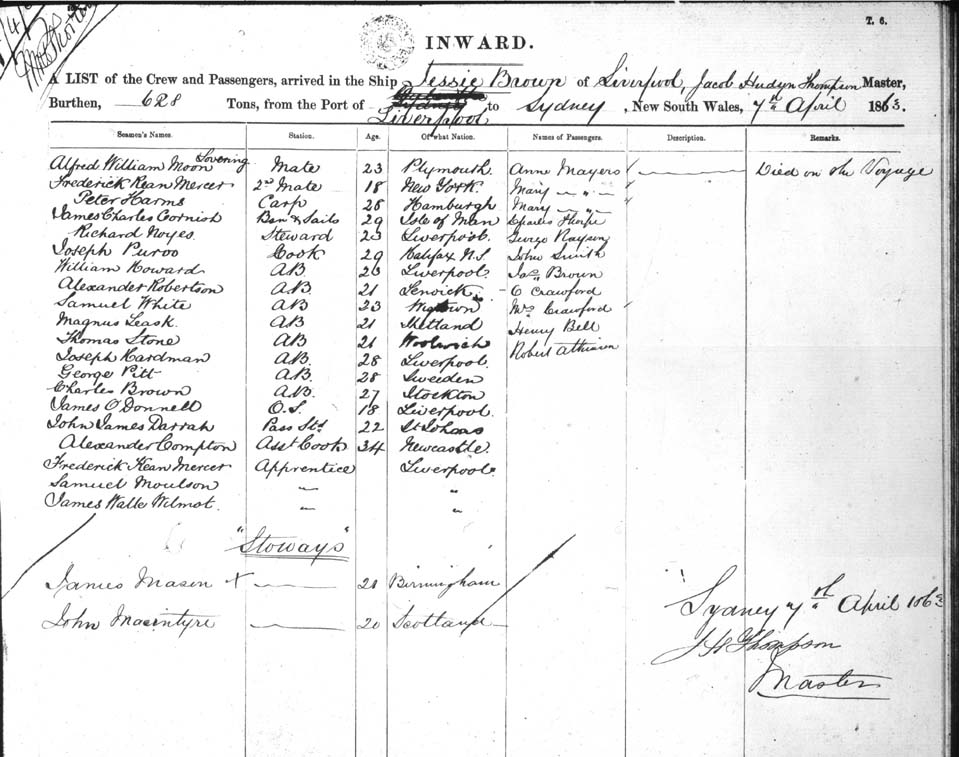 T. 6.
INWARD.
A LIST of the Crew and Passengers, arrived in the Ship Jessie Brown of Liverpool, Jacob Hudyn Thompson Master,
Burthen, 628 Tons, from the Port of Liverpool to Sydney, New South Wales, 7th April 1863.
Seamen's Names. Station. Age. Of what Nation. Names of Passengers. Description. Remarks.
Alfred William Moon Lovering Mate 23 Plymouth Ann Mayers Died on the Voyage
Frederick Kean Mercer 2nd Mate 18 New York Mary "
Peter Harms Carp 25 Hamburgh Mary "
James Charles Cornish Bosn & Sails 29 Isle of Man Charles Thorpe
Richard Noyes Steward 23 Liverpool. George Rayson
Joseph Puroo Cook 29 Halifax N.S. John Smith
William Howard AB 23 Liverpool Jas Brown
Alexander Robertson AB 21 Lerwick C Crawford
Samuel White AB 23 Wigtown Mrs Crawford
Magnus Leask AB 21 Shetland Henry Bell
Thomas Stone AB 21 Woolwich Robert Atkinson
Joseph Hardman AB. 28 Liverpool.
George Pitt AB. 28 Sweeden
Charles Brown AB. 27 Stockton
James O'Donnell O.S. 18 Liverpool.
John James Darrah Pass Std 22 St Johns
Alexander Compton Asst Cook 34 Newcastle.
Frederick Kean Mercer Apprentice Liverpool.
Samuel Moulson " "
James Walle Wilmot. " "
"Stoways"
James Mason x 21 Birmingham
John Macintyre 20 Scotland
Sydney 7th April 1863
J H Thompson
Master